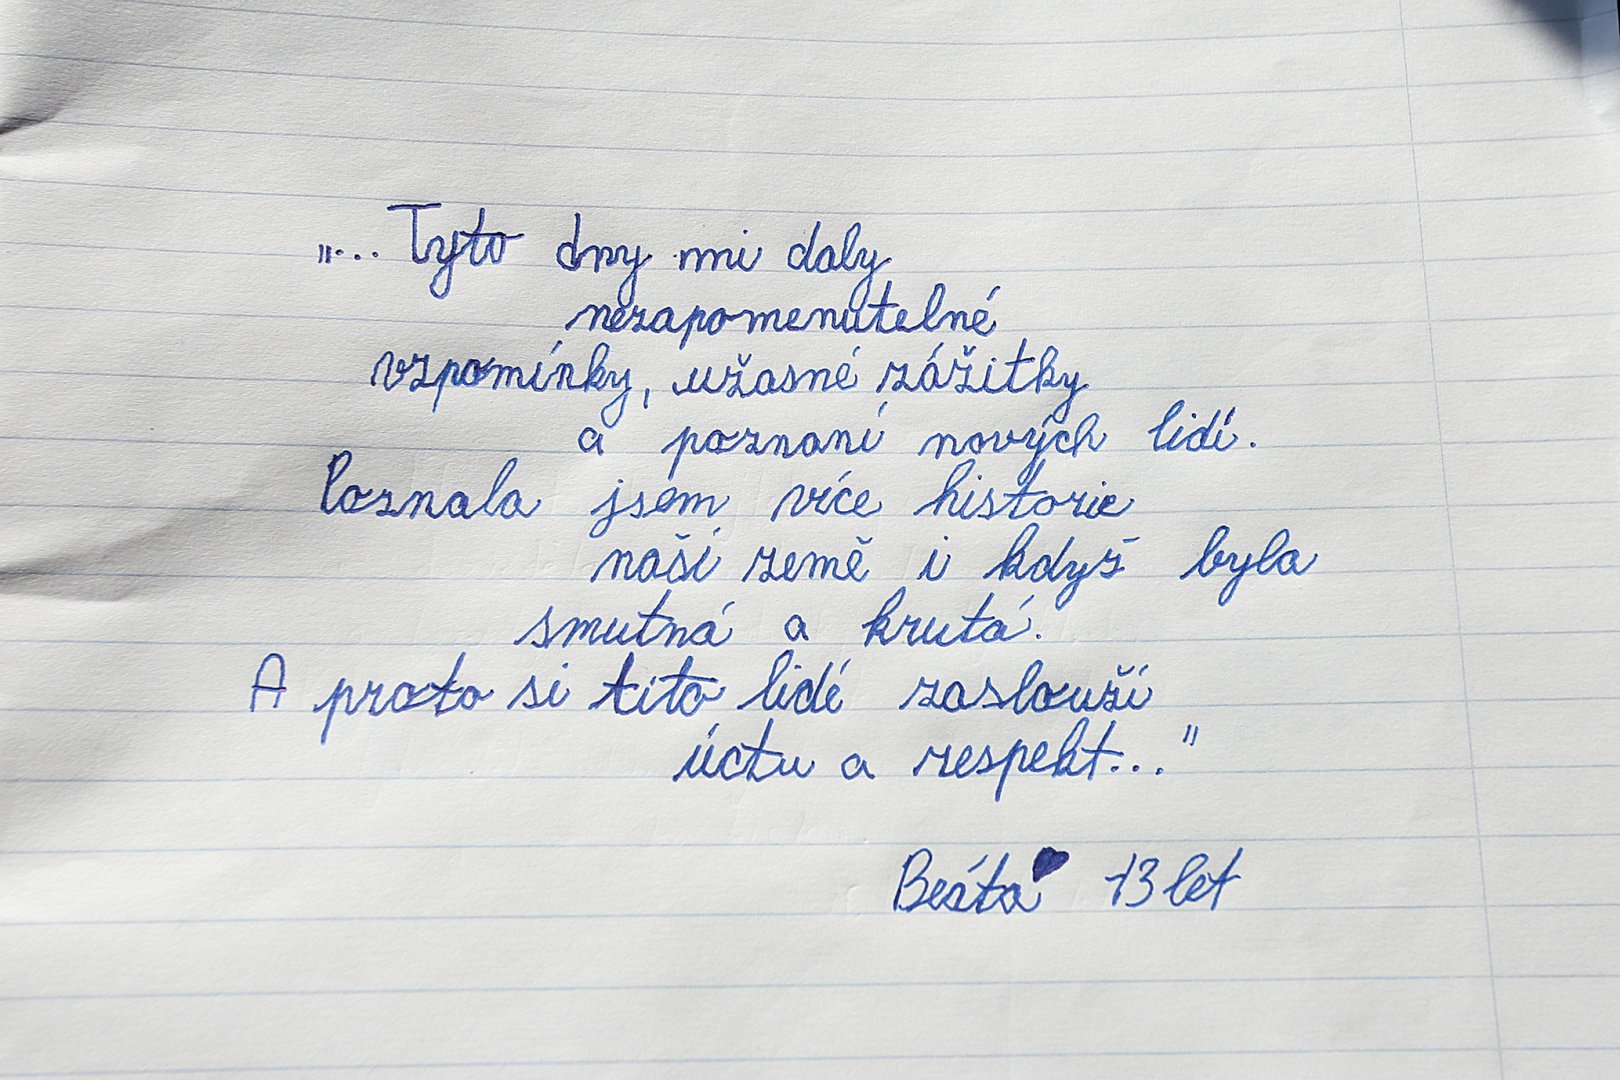 „... Tyto dny mi daly
nezapomenutelné
vzpomínky, užasné zážitky
a poznaní nových lidí.
Poznala jsem více historie
naší země i když byla
smutná a krutá.
A proto si tito lidé zaslouží
úctu a respekt..."
Beáta 13 let